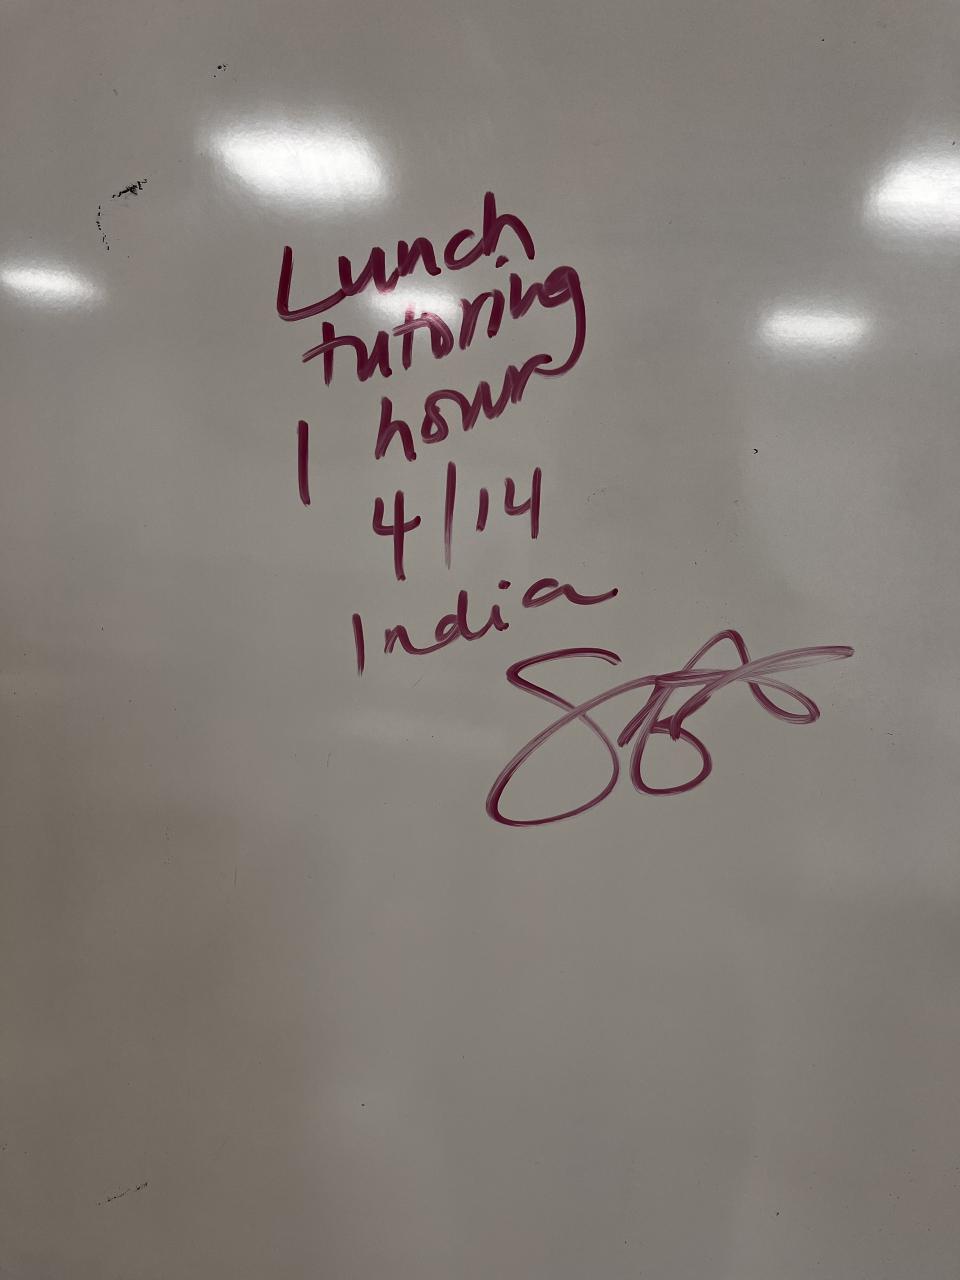 Lunch
tutoring
1 hour
4/14
India